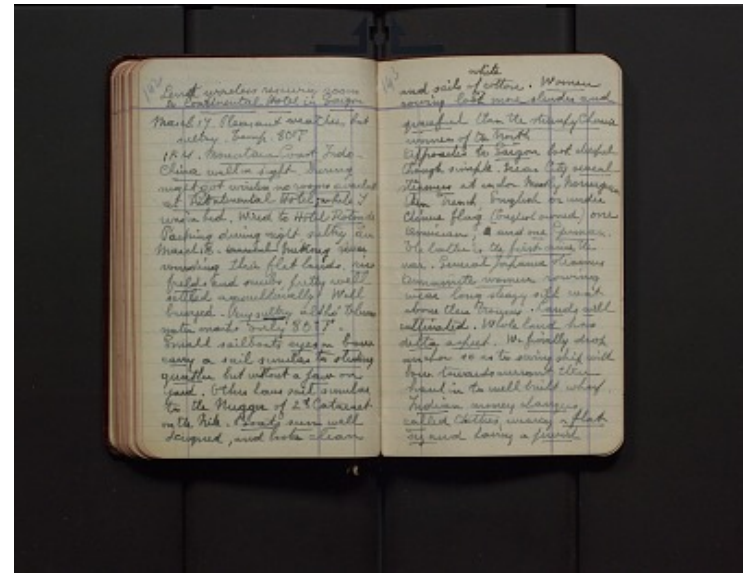 142
Send wireless reserving room
to Continental Hotel in Saigon
March 17. Pleasant weather, but
sultry. Temp. 80°F
Mountain Coast Indo-
China well in sight. During
night got wireless no rooms available
at Continental Hotel, while I
was in bed. Wired to Hotel Rotonde
Packing during night sultry air
March 18. Mekong river
winding thru flat lands, rice
fields and pretty well
settled agriculturally. Well
buoyed. Very sultry altho'
only 80°F.
Small sailboats eyes on bows
carry a sail similar to
but without a jaw on
yard. Others have sail similar
to the of 2d Cataract
on the Nile. Boats seem well
designed, and look clean
143
white
and sails of cotton. Women
rowing look more slender and
graceful than the Chinese
women of the North
Approaches to Saigon look
though simple. Near City several
steamers at anchor mostly Norwegian
then French, English or under
Chinese flag (English owned) one
American, and one German.
the first since the
war. Several Japanese steamers
Annamite women rowing
wear long silk
above their trousers. Lands well
cultivated. Whole land has
delta aspect. We finally drop
anchor so as to swing ship with
bow towards then
haul in to well built wharf.
Indian money changers,
called Chitties, wearing a flat
and having a